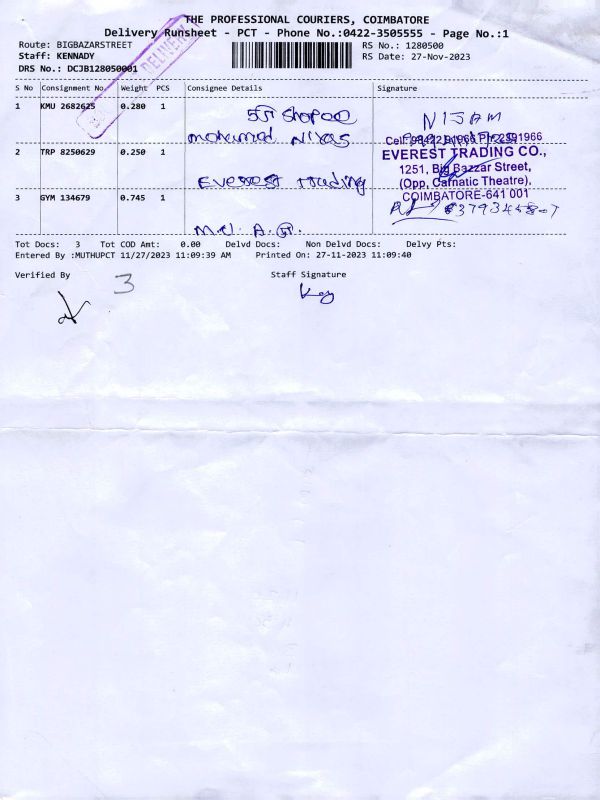 THE PROFESSIONAL COURIERS, COIMBATORE
Delivery Runsheet - PCT - Phone No.:0422-3505555 - Page No.:1
Route: BIGBAZARSTREET
RS No.: 1280500
Staff: KENNADY
RS Date: 27-Nov-2023
DRS No.: DCJB128050001
DELIVERY
S No Consignment No. Weight PCS Consignee Details Signature
1 KMU 2682625 0.280 1
NIJAM
Mohamed Niyas
Cell: 98422 91966 Ph: 2391966
2 TRP 8250629 0.250 1
EVEREST TRADING CO.,
1251, Big Bazzar Street,
Everest trading
(Opp, Carnatic Theatre),
3 GYM 134679 0.745 1
COIMBATORE-641 001
Tot Docs: 3 Tot COD Amt: 0.00 Delvd Docs: Non Delvd Docs: Delvy Pts:
Entered By :MUTHUPCT 11/27/2023 11:09:39 AM Printed On: 27-11-2023 11:09:40
Verified By
Staff Signature
3